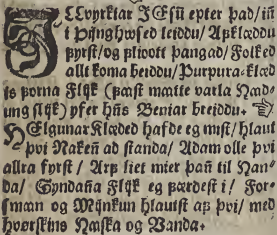 ILLvyrkiar JEsū epter þad/ iñ
i Pijnghwsed leiddu/ Afklæddu
Þyrst/ og þlivott þangad/ Folked
allt koma beiddu/ Purpura-klæd
is Þorna Flijk (Þast matte varla Hand-
ung slijk) yfer hñs Beniar breiddu.
HElgunar Klæded hafde eg mist/ hlaut
þvi Nakeñ ad standa/ Adam olle þvi
allra fyrst/ Arf liet mier þañ til Han-
da/ Syndaña Flijk eg færdest i/ For-
sman og Mijnkun hlautst af þvi/ med
hvørskins Naska og Vanda.